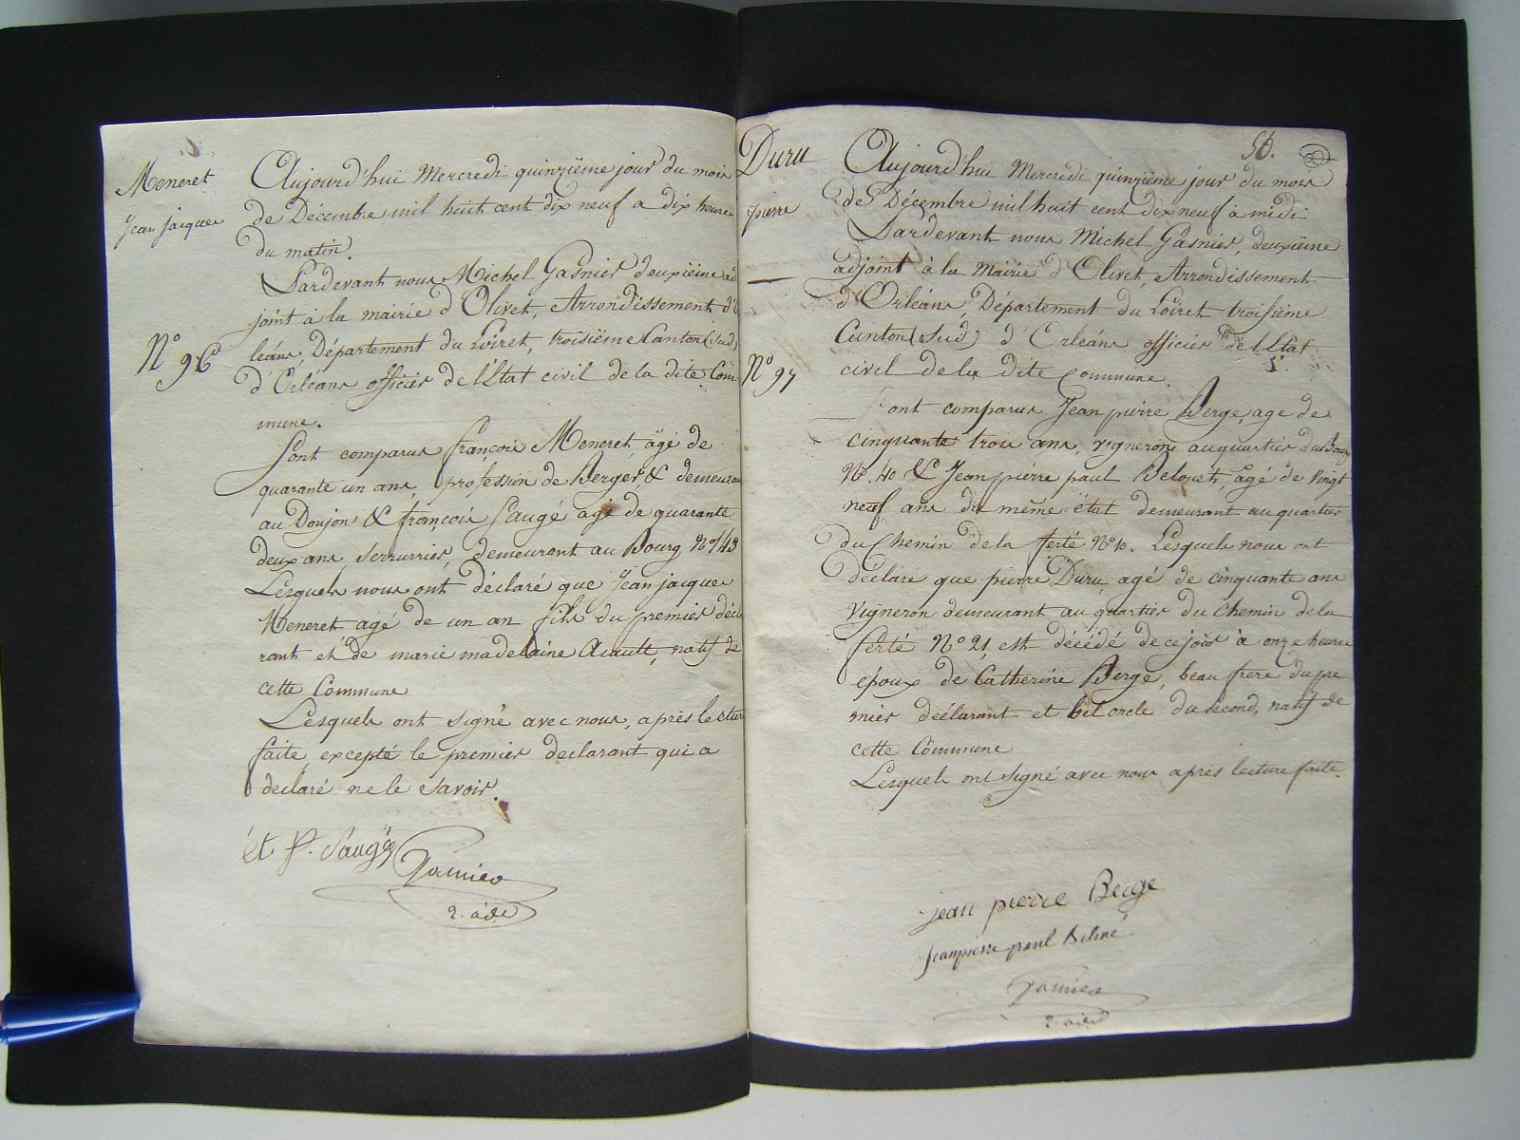 Meneret
Jean jacques
N° 96
Aujourd'hui Mercredi quinzième jour du mois
de Décembre mil huit cent dix neuf a dix heures
du matin.
Pardevant nous Michel Gasnier deuxième ad
joint à la mairie d'Olivet, Arrondissement d'Or
léans, Département du Loiret, troisième Canton (Sud)
d'Orléans officier de l'Etat civil de la dite Com
mune.
Sont comparus françois Meneret, âgé de
quarante un ans, profession de Berger & demeurant
au Donjon & françois Saugé agé de quarante
deux ans, Serrurrier, demeurant au Bourg N° 143
Lesquels nous ont déclaré que Jean jacques
Meneret agé de un an fils du premier décla
rant et de marie madelaine natif de
cette Commune
Lesquels ont signé avec nous, après lecture
faite, excepté le premier declarant qui a
declaré ne le Savoir.
et f. Saugé
Gasnier
2. adt
Duru
pierre
N° 97
50.
Aujourd'hui Mercredi quinzième jour du mois
de Décembre mil huit cent dix neuf à midi
Pardevant nous Michel Gasnier, deuxième
adjoint à la Mairie d'Olivet, Arrondissement
d'Orléans, Département du Loiret troisième
Canton (Sud) d'Orléans officier de l'Etat
civil de la dite Commune.
Sont comparus Jean pierre Berge, age de
cinquante trois ans, vigneron au quartier du Bourg
N°. 40 & Jean pierre paul agé de Vingt
neuf ans du même état demeurant au quartier
du Chemin de la ferté N° 10. Lesquels nous ont
déclaré que pierre Duru, agé de cinquante ans
Vigneron demeurant au quartier du Chemin de la
ferté N° 21, est décédé de ce jour à onze heures
époux de Catherine Berge, beau frere du pre
mier déclarant et bel oncle du second, natif de
cette Commune
Lesquels ont signé avec nous après lecture faite.
jean pierre Berge
Jean pierre paul
Gasnier
2. adt